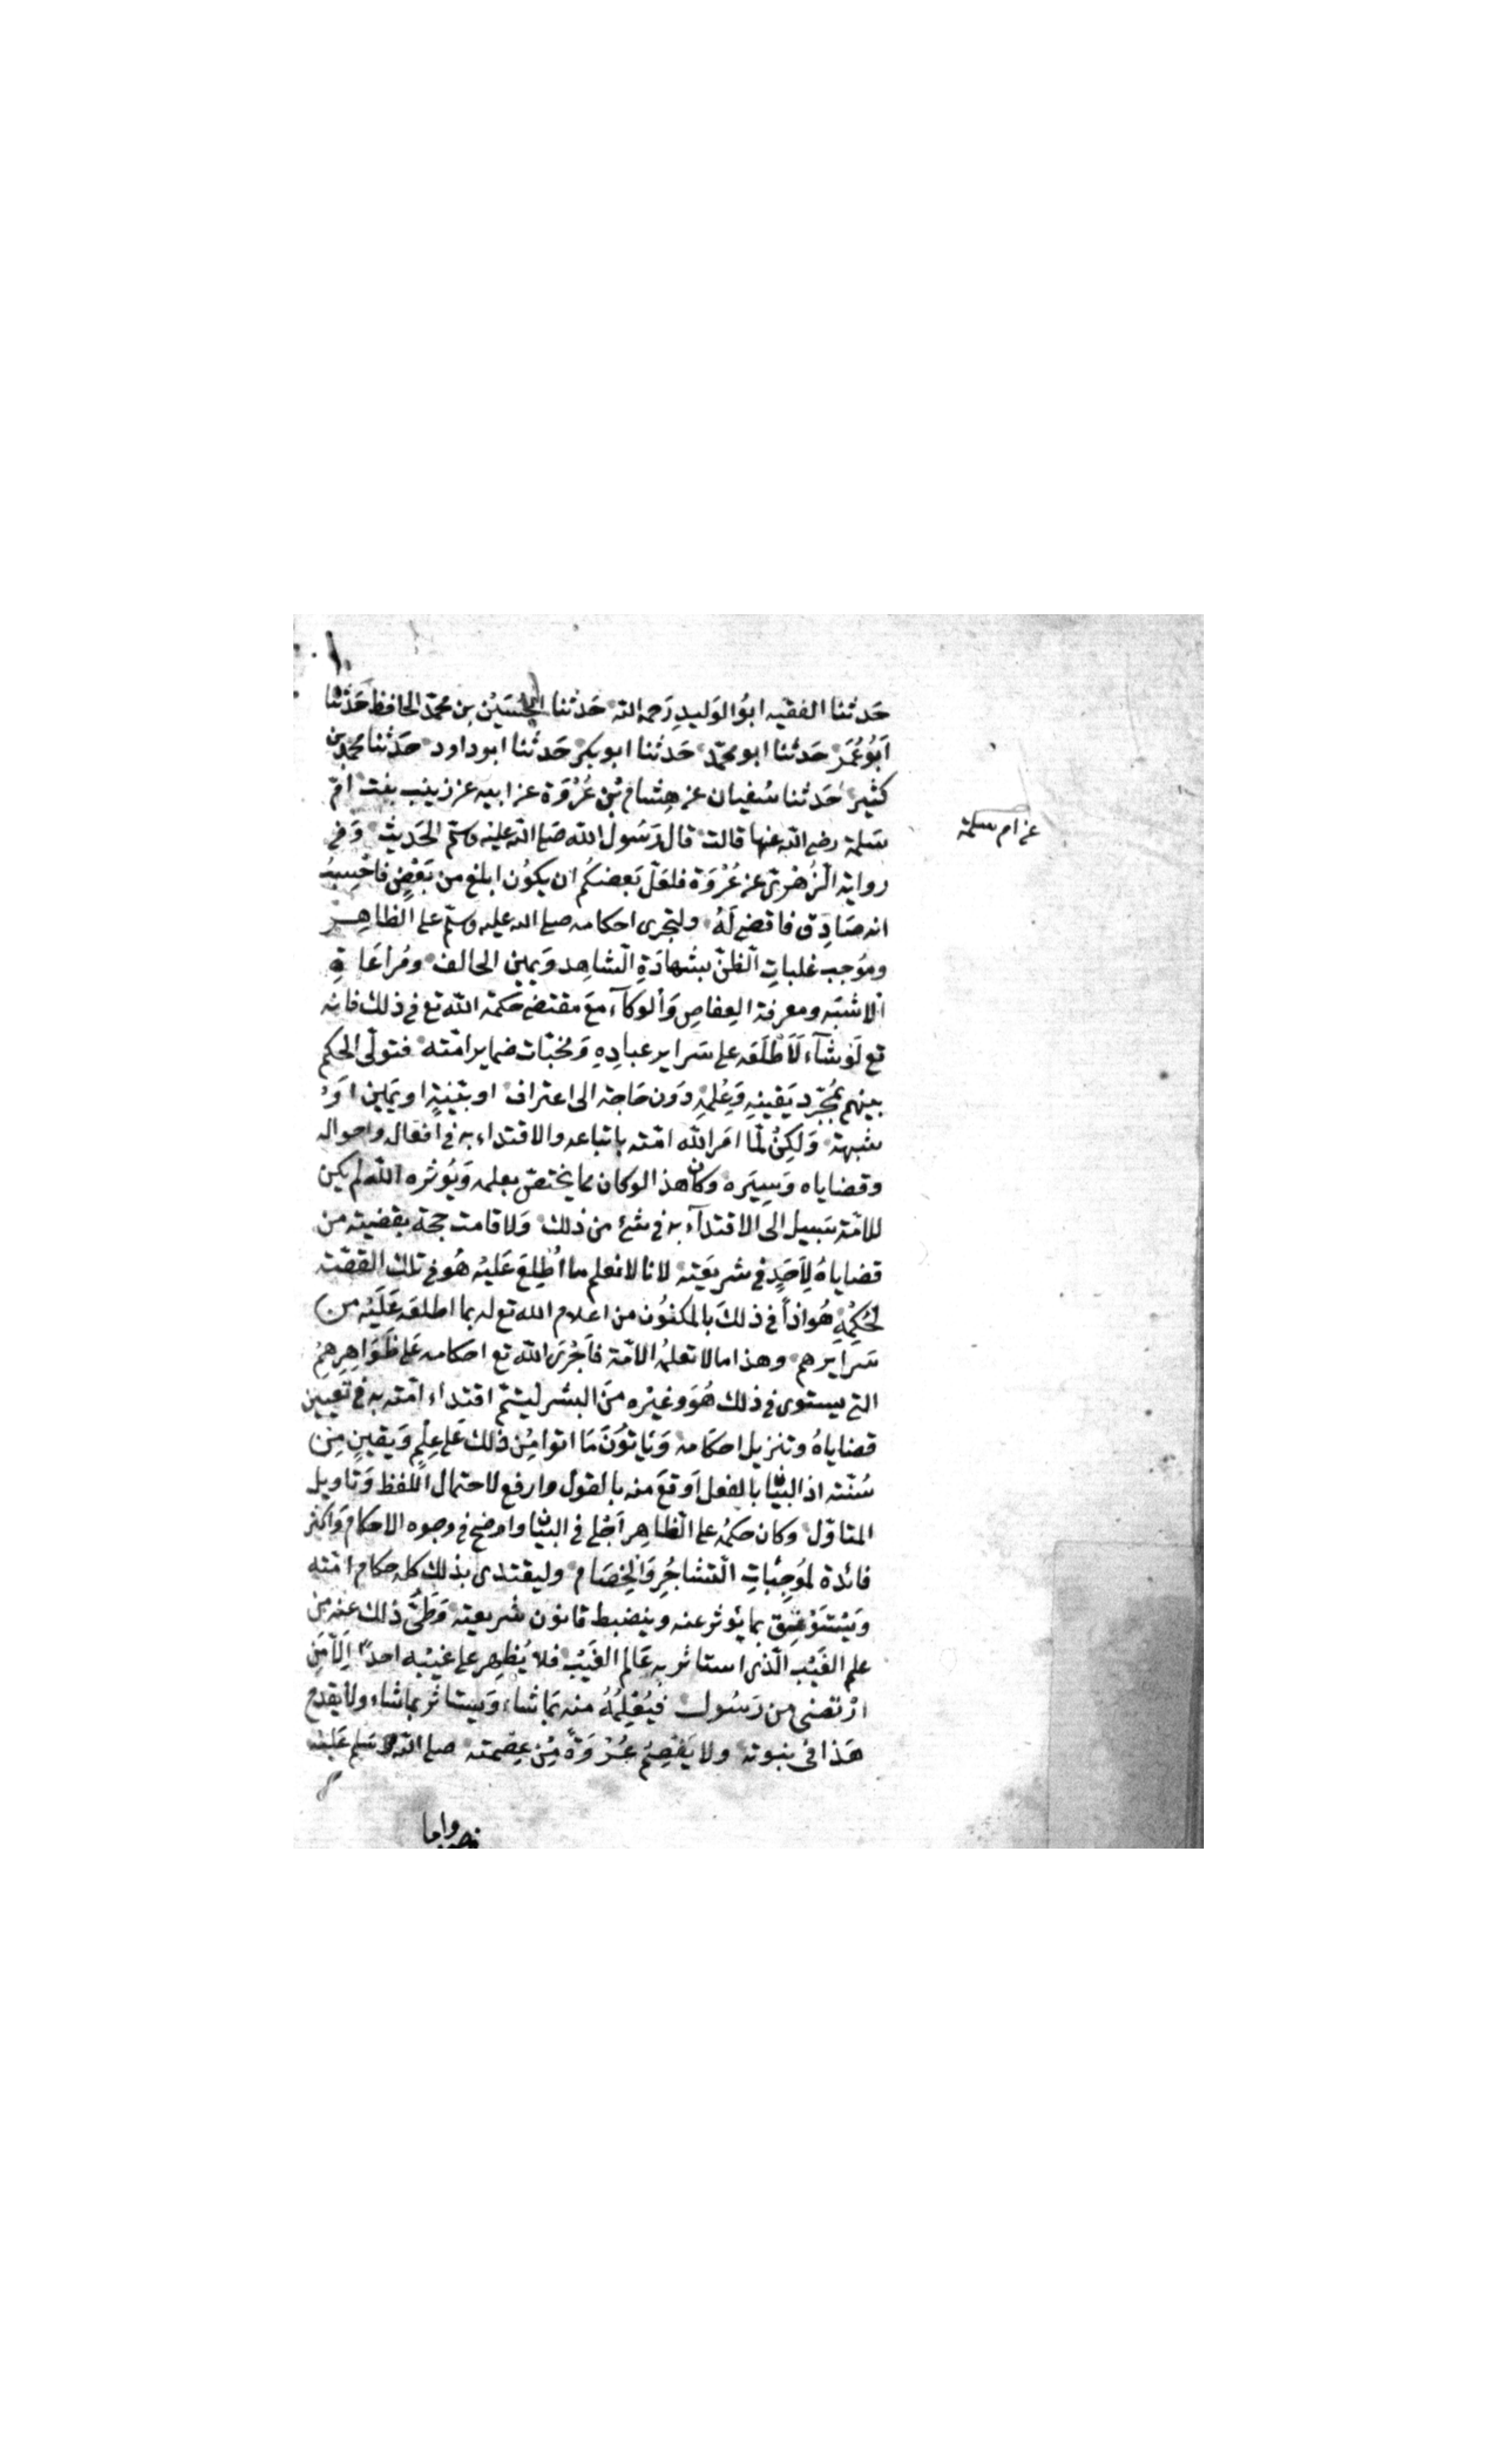 حَدثنا الفقيه ابوُ الوَليدِ رَحمه الله حَدثنا الحُسَيْن بن محمّد الحافظ حَدثنا
اَبُوعُمَر حَدثنا ابو محمّد حَدثنا ابوبكر حَدثنا ابوداود حَدثنا محمّد بن
كثير حَدثنا سُفيان عن هِشام بْن عُرْوَة عن ابيه عن زينب بنت امّ
سَلمة رضى الله عنها قالت قال رَسُول الله صَلى الله عليْه وسَلّم الحَديث وَفى
رواية الزُهْرىّ عن عُرْوَة فلعَلّ بَعضكُم ان يكوُن ابلغ من بَعْضٍ فاَحْسِبُ
انه صَادِق فاقضى لَهُ ولتجرى احكامه صلى الله عليه وسلّم على الظاهِر
وموُجب غلباتِ الظنّ بشهادَةِ الشاهِد وَيمين الحالف ومُراعَاةِ
الاشبَه ومعرفة العِفاصِ وَالوكآء مَعَ مقتضى حَكمة الله تع فى ذلك فانه
تع لَوشآء لَاَطْلَعَه على سَراير عبادِهِ وَمخبّات ضماير امّته فتولّى الحكم
بينهم بمُجرّد يَقينهِ وَعِلمهِ دوَن حَاجة الى اعتراف او بَيّنةٍ او يَمين اَوْ
شبهة وَلكِنْ لمّا امَرالله امّته باتباعه والاقتداء به فى افعاله واحواله
وقضاياه وَسِيَره وكان هذا لوكان مما يختصّ بعلمه وَيُوثره الله لم يكن
للامّة سَبيل الى الاقتدآء به فى شئ من ذلك وَلا قامت حجة بقضية من
قضاياهُ لاَحَدٍ فى شريعَته لانا لا نعلم ما اُطْلِعَ عَليْه هوُ فى تلك القضيّة
لحُكِمْهِ هُو اذاً فى ذلكَ بالمكنوُن من اعلام الله تع له بما اطلعَه عَلَيْه من
سَرايرهم وهذا مالا تعلمهُ الامّة فاَجْرَى الله تع احكامه عَلى ظَوَاهِرِهِمْ
التى يستوى فى ذلك هُوَ وغيْره منَ البشر ليتمّ اقتداء امّته به فى تعيين
قضاياهُ وتنزيل احكامه وَيَاتوُنَ مَا اتوا مِنْ ذلك عَلى عِلمٍ وَيقينٍ مِن
سُنّته اذ البيان بالفعل اَوقعَ منه بالقول وارفع لاحتمال اللفظ وَتاويل
المتاوّل وكان حكمُه على الظاهر اَجْلى فى البيان واوضح فى وجوه الاحكام وَاكثر
فائدة لموُجِبَاتِ التشاجُرِ وَالخِصَام وليقتدى بذلك كله حكام امّته
وَيَسْتَوْثِق بما يُوثر عنه وينضبط قانون شريعته وَطَىُّ ذلك عنه من
علم الغَيْب الّذى استاثر به عَالم الغَيْب فلا يُظهر على غيْبه احداً اِلّا مَنِ
ارْتضى من رَسُول فيُعْلِمُهُ منه بمَا شاء وَيستاثر بما شاء ولا يقدح
هَذا فى نبوته ولا يَفْصِمُ عُرْوَةً مِنْ عِصْمته صلى الله وسلم عليه
عن ام سلمة
واما